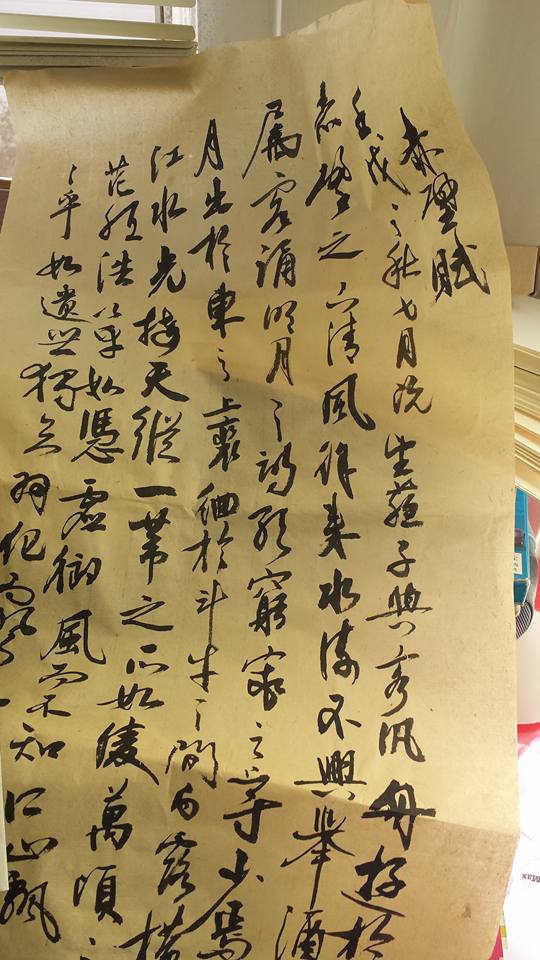 赤壁賦
壬戌之秋七月既望蘇子與客汎舟遊於
赤壁之下清風徐來水波不興舉酒
屬客誦明月之詩歌窈窕之章少焉
月出於東之上裵徊於斗牛之間白露橫
江水光接天縱一葦之所如凌萬頃之
茫然浩乎如憑虛御風而不知止飄
々乎如遺世獨立羽化而登